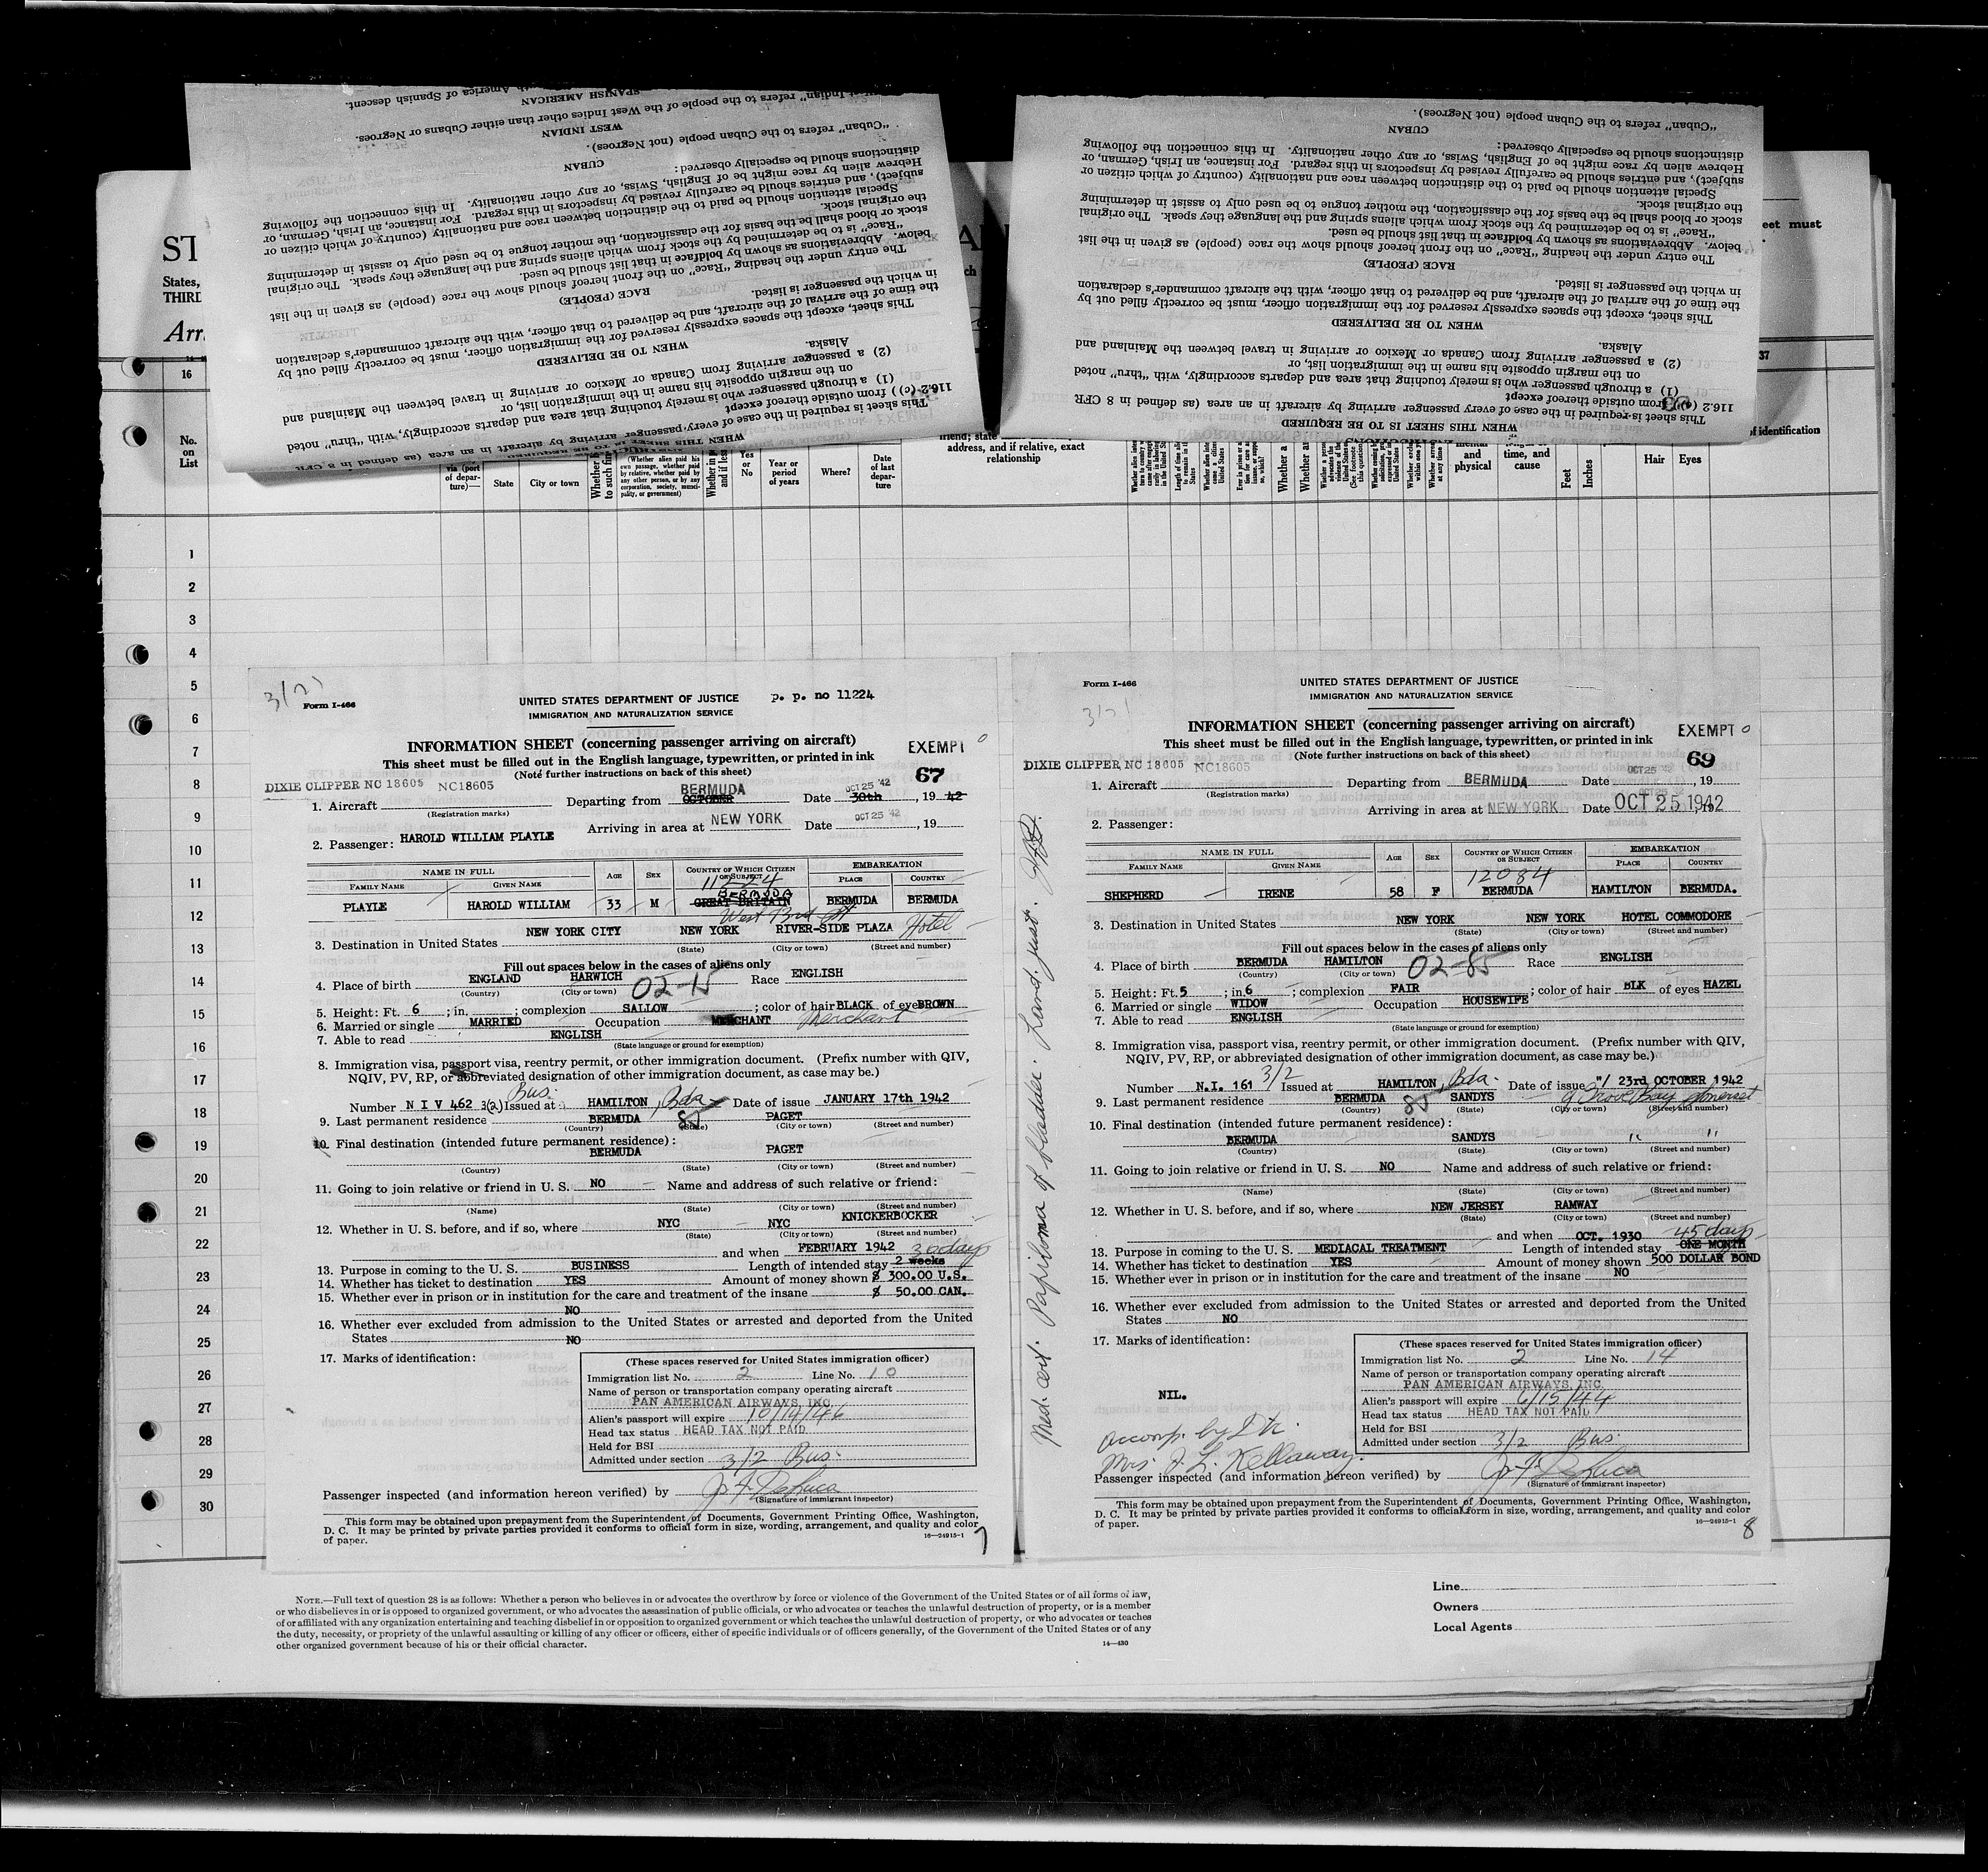 ST
States,
THIRD
Arr
16
No.
on
List
via (port
of depar-
ture)—
State
City or town
(Whether alien paid his
own passage, whether paid
by relative, whether paid by
any other person, or by any
corporation, society, munici-
pality, or government)
Yes
or
No
Year or
period
of years
Where?
Date
of last
depar-
ture
friend; state
address, and if relative, exact
relationship
and
physical
time, and
cause
Feet
Inches
Hair
Eyes
of identification
37
eet must
1
2
3
4
5
6
7
8
9
10
11
12
13
14
15
16
17
18
19
20
21
22
23
24
25
26
27
28
29
30
WHEN THIS SHEET IS TO BE REQUIRED
This sheet is required in the case of every passenger arriving by aircraft in an area (as defined in 8 CFR
116.2 (c)) from outside thereof except
(1) a through passenger who is merely touching that area and departs accordingly, with "thru" noted
on the margin opposite his name in the immigration list, or
(2) a passenger arriving from Canada or Mexico or arriving in travel between the Mainland and
Alaska.
WHEN TO BE DELIVERED
This sheet, except the spaces expressly reserved for the immigration officer, must be correctly filled out by
the time of the arrival of the aircraft, and be delivered to that officer, with the aircraft commander's declaration
in which the passenger is listed.
RACE (PEOPLE)
The entry under the heading "Race," on the front hereof should show the race (people) as given in the list
below. Abbreviations as shown by boldface in that list should be used.
"Race" is to be determined by the stock from which aliens spring and the language they speak. The original
stock or blood shall be the basis for the classification, the mother tongue to be used only to assist in determining
the original stock.
Special attention should be paid to the distinction between race and nationality (country of which citizen or
subject), and entries should be carefully revised by inspectors in this regard. For instance, an Irish, German, or
Hebrew alien by race might be of English, Swiss, or any other nationality. In this connection the following
distinctions should be especially observed:
CUBAN
"Cuban" refers to the Cuban people (not Negroes).
WEST INDIAN
"West Indian" refers to the people of the West Indies other than either Cubans or Negroes.
SPANISH AMERICAN
America of Spanish descent.
WHEN THIS SHEET IS TO BE REQUIRED
This sheet is required in the case of every passenger arriving by aircraft in an area (as defined in 8 CFR
116.2 (c)) from outside thereof except
(1) a through passenger who is merely touching that area and departs accordingly, with "thru" noted
on the margin opposite his name in the immigration list, or
(2) a passenger arriving from Canada or Mexico or arriving in travel between the Mainland and
Alaska.
WHEN TO BE DELIVERED
This sheet, except the spaces expressly reserved for the immigration officer, must be correctly filled out by
the time of the arrival of the aircraft, and be delivered to that officer, with the aircraft commander's declaration
in which the passenger is listed.
RACE (PEOPLE)
The entry under the heading "Race," on the front hereof should show the race (people) as given in the list
below. Abbreviations as shown by boldface in that list should be used.
"Race" is to be determined by the stock from which aliens spring and the language they speak. The original
stock or blood shall be the basis for the classification, the mother tongue to be used only to assist in determining
the original stock.
Special attention should be paid to the distinction between race and nationality (country of which citizen or
subject), and entries should be carefully revised by inspectors in this regard. For instance, an Irish, German, or
Hebrew alien by race might be of English, Swiss, or any other nationality. In this connection the following
distinctions should be especially observed:
CUBAN
"Cuban" refers to the Cuban people (not Negroes).
Form I-466
UNITED STATES DEPARTMENT OF JUSTICE p. p. no 11224
IMMIGRATION AND NATURALIZATION SERVICE
INFORMATION SHEET (concerning passenger arriving on aircraft) EXEMPT
This sheet must be filled out in the English language, typewritten, or printed in ink
(Note further instructions on back of this sheet) 67
DIXIE CLIPPER NC 18605 NC18605 BERMUDA OCT 25 '42
1. Aircraft Departing from OCTOBER Date 30th, 19 42
(Registration marks) Arriving in area at NEW YORK Date OCT 25 '42, 19
2. Passenger: HAROLD WILLIAM PLAYLE
NAME IN FULL AGE SEX COUNTRY OF WHICH CITIZEN OR SUBJECT EMBARKATION
FAMILY NAME GIVEN NAME 11224 PLACE COUNTRY
BERMUDA
PLAYLE HAROLD WILLIAM 33 M GREAT BRITAIN BERMUDA BERMUDA
NEW YORK CITY NEW YORK RIVER-SIDE PLAZA Hotel
3. Destination in United States
(State) (City or town) (Street and number)
Fill out spaces below in the cases of aliens only
4. Place of birth ENGLAND HARWICH 02-15 Race ENGLISH
(Country) (City or town)
5. Height: Ft. 6 ; in. ; complexion SALLOW ; color of hair BLACK of eyes BROWN
6. Married or single MARRIED Occupation MERCHANT Merchant
7. Able to read ENGLISH
(State language or ground for exemption)
8. Immigration visa, passport visa, reentry permit, or other immigration document. (Prefix number with QIV,
NQIV, PV, RP, or abbreviated designation of other immigration document, as case may be.)
Bus.
Number N I V 462 3(2) Issued at HAMILTON, Bda Date of issue JANUARY 17th 1942
9. Last permanent residence BERMUDA 85 PAGET
(Country) (State) (City or town) (Street and number)
10. Final destination (intended future permanent residence):
BERMUDA PAGET
(Country) (State) (City or town) (Street and number)
11. Going to join relative or friend in U. S. NO Name and address of such relative or friend:
(Name) (State) (City or town) (Street and number)
12. Whether in U. S. before, and if so, where NYC NYC KNICKERBOCKER
(State) (City or town) (Street and number)
and when FEBRUARY 1942 30 days
13. Purpose in coming to the U. S. BUSINESS Length of intended stay 2 weeks
14. Whether has ticket to destination YES Amount of money shown $ 300.00 U.S.
15. Whether ever in prison or in institution for the care and treatment of the insane $ 50.00 CAN.
NO
16. Whether ever excluded from admission to the United States or arrested and deported from the United
States NO
17. Marks of identification:
(These spaces reserved for United States immigration officer)
Immigration list No. 2 Line No. 10
Name of person or transportation company operating aircraft
PAN AMERICAN AIRWAYS, INC.
Alien's passport will expire 10/19/46
Head tax status HEAD TAX NOT PAID
Held for BSI
Admitted under section 3/2 Bus.
Passenger inspected (and information hereon verified) by
(Signature of immigrant inspector)
This form may be obtained upon prepayment from the Superintendent of Documents, Government Printing Office, Washington,
D. C. It may be printed by private parties provided it conforms to official form in size, wording, arrangement, and quality and color
of paper. 16—24915-1 7
Form I-466
UNITED STATES DEPARTMENT OF JUSTICE
IMMIGRATION AND NATURALIZATION SERVICE
INFORMATION SHEET (concerning passenger arriving on aircraft) EXEMPT
This sheet must be filled out in the English language, typewritten, or printed in ink
(Note further instructions on back of this sheet) 69
DIXIE CLIPPER NC 18605 NC18605 OCT 25 '42
1. Aircraft Departing from BERMUDA Date , 19
(Registration marks) Arriving in area at NEW YORK Date OCT 25 1942
2. Passenger:
NAME IN FULL AGE SEX COUNTRY OF WHICH CITIZEN OR SUBJECT EMBARKATION
FAMILY NAME GIVEN NAME 12084 PLACE COUNTRY
SHEPHERD IRENE 58 F BERMUDA HAMILTON BERMUDA.
3. Destination in United States NEW YORK NEW YORK HOTEL COMMODORE
(State) (City or town) (Street and number)
Fill out spaces below in the cases of aliens only
4. Place of birth BERMUDA HAMILTON 02-85 Race ENGLISH
(Country) (City or town)
5. Height: Ft. 5 ; in. 6 ; complexion FAIR ; color of hair BLK of eyes HAZEL
6. Married or single WIDOW Occupation HOUSEWIFE
7. Able to read ENGLISH
(State language or ground for exemption)
8. Immigration visa, passport visa, reentry permit, or other immigration document. (Prefix number with QIV,
NQIV, PV, RP, or abbreviated designation of other immigration document, as case may be.)
Number N.I. 161 3/2 Issued at HAMILTON, Bda. Date of issue 23rd OCTOBER 1942
9. Last permanent residence BERMUDA 85 SANDYS Bay Somerset
(Country) (State) (City or town) (Street and number)
10. Final destination (intended future permanent residence):
BERMUDA SANDYS " "
(Country) (State) (City or town) (Street and number)
11. Going to join relative or friend in U. S. NO Name and address of such relative or friend:
(Name) (State) (City or town) (Street and number)
12. Whether in U. S. before, and if so, where NEW JERSEY RAMWAY
(State) (City or town) (Street and number)
and when OCT. 1930 45 days
13. Purpose in coming to the U. S. MEDIACAL TREATMENT Length of intended stay ONE MONTH
14. Whether has ticket to destination YES Amount of money shown 500 DOLLAR BOND
15. Whether ever in prison or in institution for the care and treatment of the insane NO
16. Whether ever excluded from admission to the United States or arrested and deported from the United
States NO
17. Marks of identification:
NIL.
(These spaces reserved for United States immigration officer)
Immigration list No. 2 Line No. 14
Name of person or transportation company operating aircraft
PAN AMERICAN AIRWAYS, INC.
Alien's passport will expire 6/15/44
Head tax status HEAD TAX NOT PAID
Held for BSI
Admitted under section 3/2 Bus.
Accomp. by
Mrs. J. L. Kellaway.
Passenger inspected (and information hereon verified) by
(Signature of immigrant inspector)
This form may be obtained upon prepayment from the Superintendent of Documents, Government Printing Office, Washington,
D. C. It may be printed by private parties provided it conforms to official form in size, wording, arrangement, and quality and color
of paper. 16—24915-1 8
Med. cert. Papiloma of bladder.
NOTE.—Full text of question 28 is as follows: Whether a person who believes in or advocates the overthrow by force or violence of the Government of the United States or of all forms of law,
or who disbelieves in or is opposed to organized government, or who advocates the assassination of public officials, or who advocates or teaches the unlawful destruction of property, or is a member
of or affiliated with any organization entertaining and teaching disbelief in or opposition to organized government or which teaches the unlawful destruction of property, or who advocates or teaches
the duty, necessity, or propriety of the unlawful assaulting or killing of any officer or officers, either of specific individuals or of officers generally, of the Government of the United States or of any
other organized government because of his or their official character. 14—430
Line
Owners
Local Agents